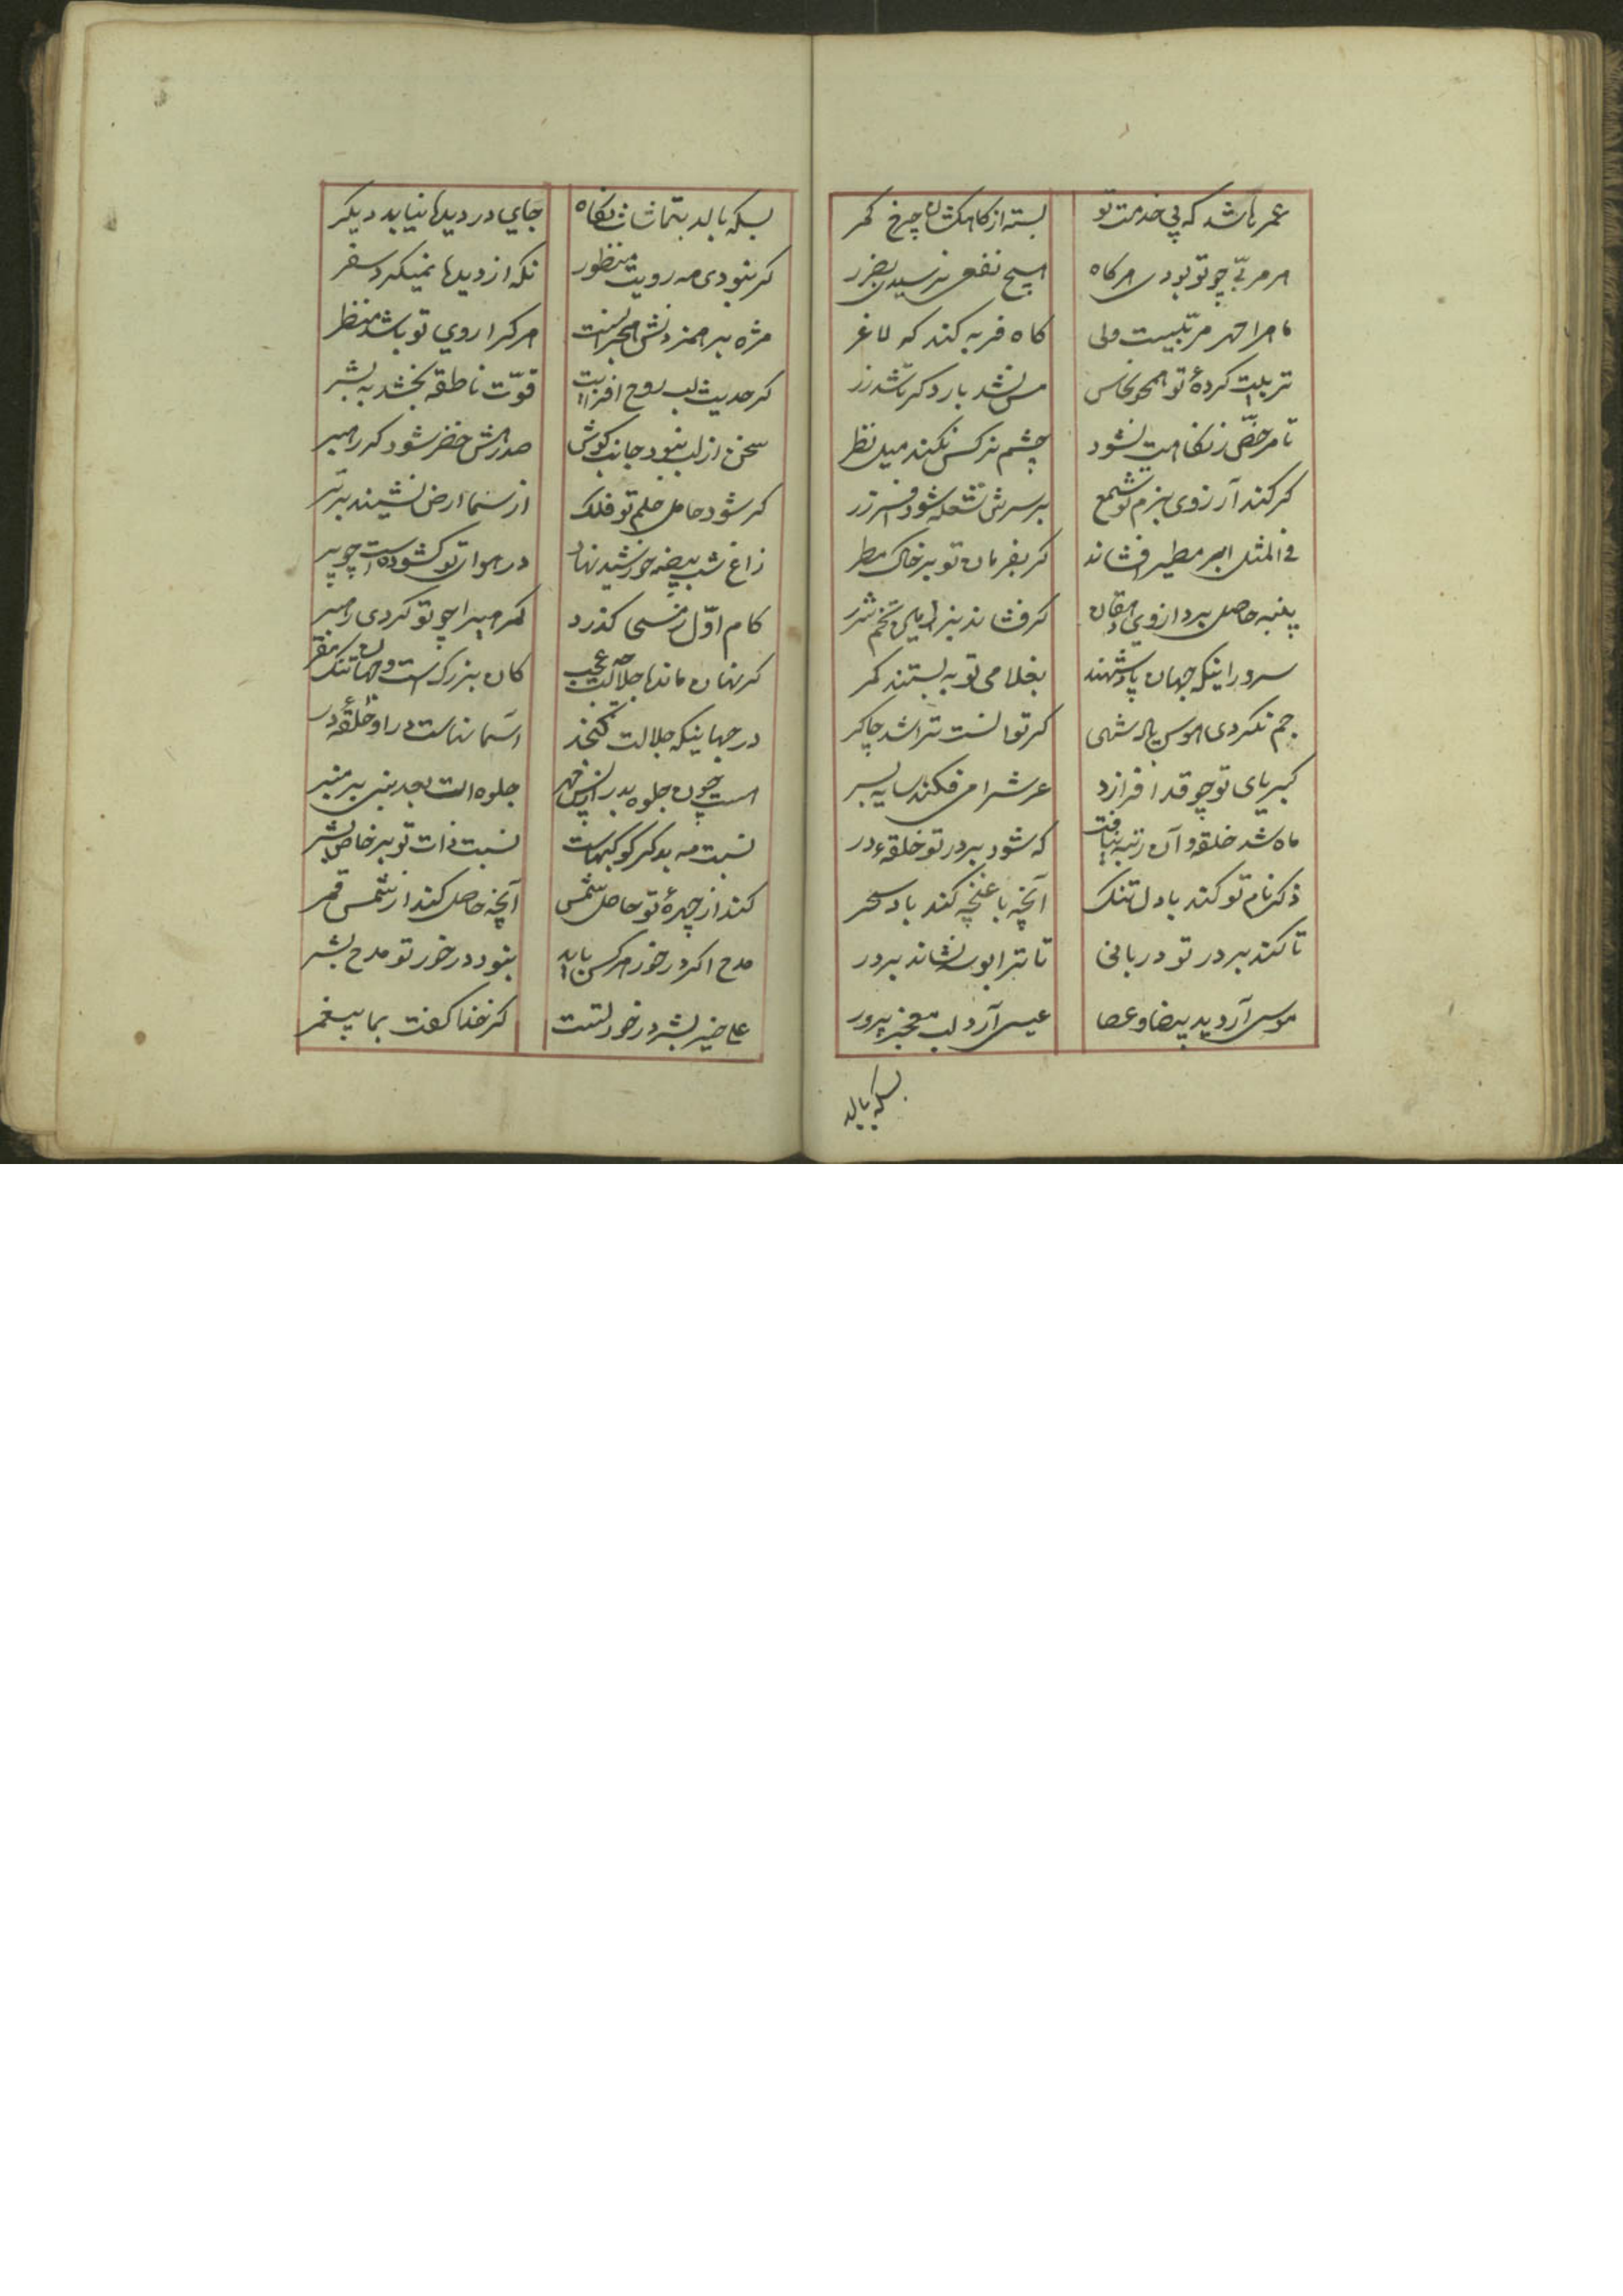 عمرها شد که پی خدمت تو بسته از کاهکشان چرخ کمر
هر مربّی چو تو بودی هرگاه هیچ نفعی نرسیدی بضرر
ماه را مهر مربّیست ولی کاه فربه کند که لاغر
تربیت کردهٔ تو همچو نحاس مس نشد بار دگر تا شد زر
تا مرخّص ز نکاهت نشود چشم نرکس نکند میل نظر
کر کند آرزوی بزم تو شمع بر سرش شعله شود افسر زر
فی المثل ابر مطیر افشاند کر بفرمان تو بر خاک مطر
پنبه حاصل برد از وی دهقان کر فشاند بزراعت تخم شرر
سرور اینکه جهان پادشهند بغلامی تو به بستند کمر
جم نکردی هوس پادشهی کر توانست ترا شد چاکر
کبریای تو چو قد افرازد عرش را می فکند سایه بسر
ماه شد حلقه و آن رتبه نیافت که شود بر در تو حلقهء در
ذکر نام تو کند با دل تنک آنچه با غنچه کند باد سحر
تا کند بر در تو دربانی تا ترا بوسه نشاند بر در
موسی آرد ید بیضا و عصا عیسی آرد لب معجز پرور
بسکه بالد
بسکه بالد بتماشات نکاه جای در دیدها نیابد دیکر
کر نبودی مه رویت منظور نکه از دیدها نمیکرد سفر
مژه بر همزدنش هجرانست هر کرا روی تو باشد منظر
کر حدیث لب روح افزایت قوّت ناطقه بخشد به بشر
سخن از لب نبود جانب کوش صد رهش خضر شود کر رهبر
کر شود حامل حلم تو فلک از سما ارض نشیند برتر
زاغ شب بیضه خورشید نهاد در هوای تو کشوده است چو پر
کام اوّل ز مسمی کذرد کمرهی را چو تو کردی رهبر
کر نهان ماند جلالت چه عجب کان بزرک است و جهان تنک مقر
در جهانیکه جلالت کنجد آسمانهاست در او حلقهٔ در
هست چون جلوه بدر از پس مهر جلوه ات بعد نبی بر منبر
نسبت مه بدکر کوکبهاست نسبت ذات تو بر خاص بشر
کند از چهرهٔ تو حاصل شمس آنچه حاصل کند از شمس قمر
مدح اکر در خور هر کس باید نبود در خور تو مدح بشر
علی خیر بشر در خور تست کز خدا کفت بما پیغمبر